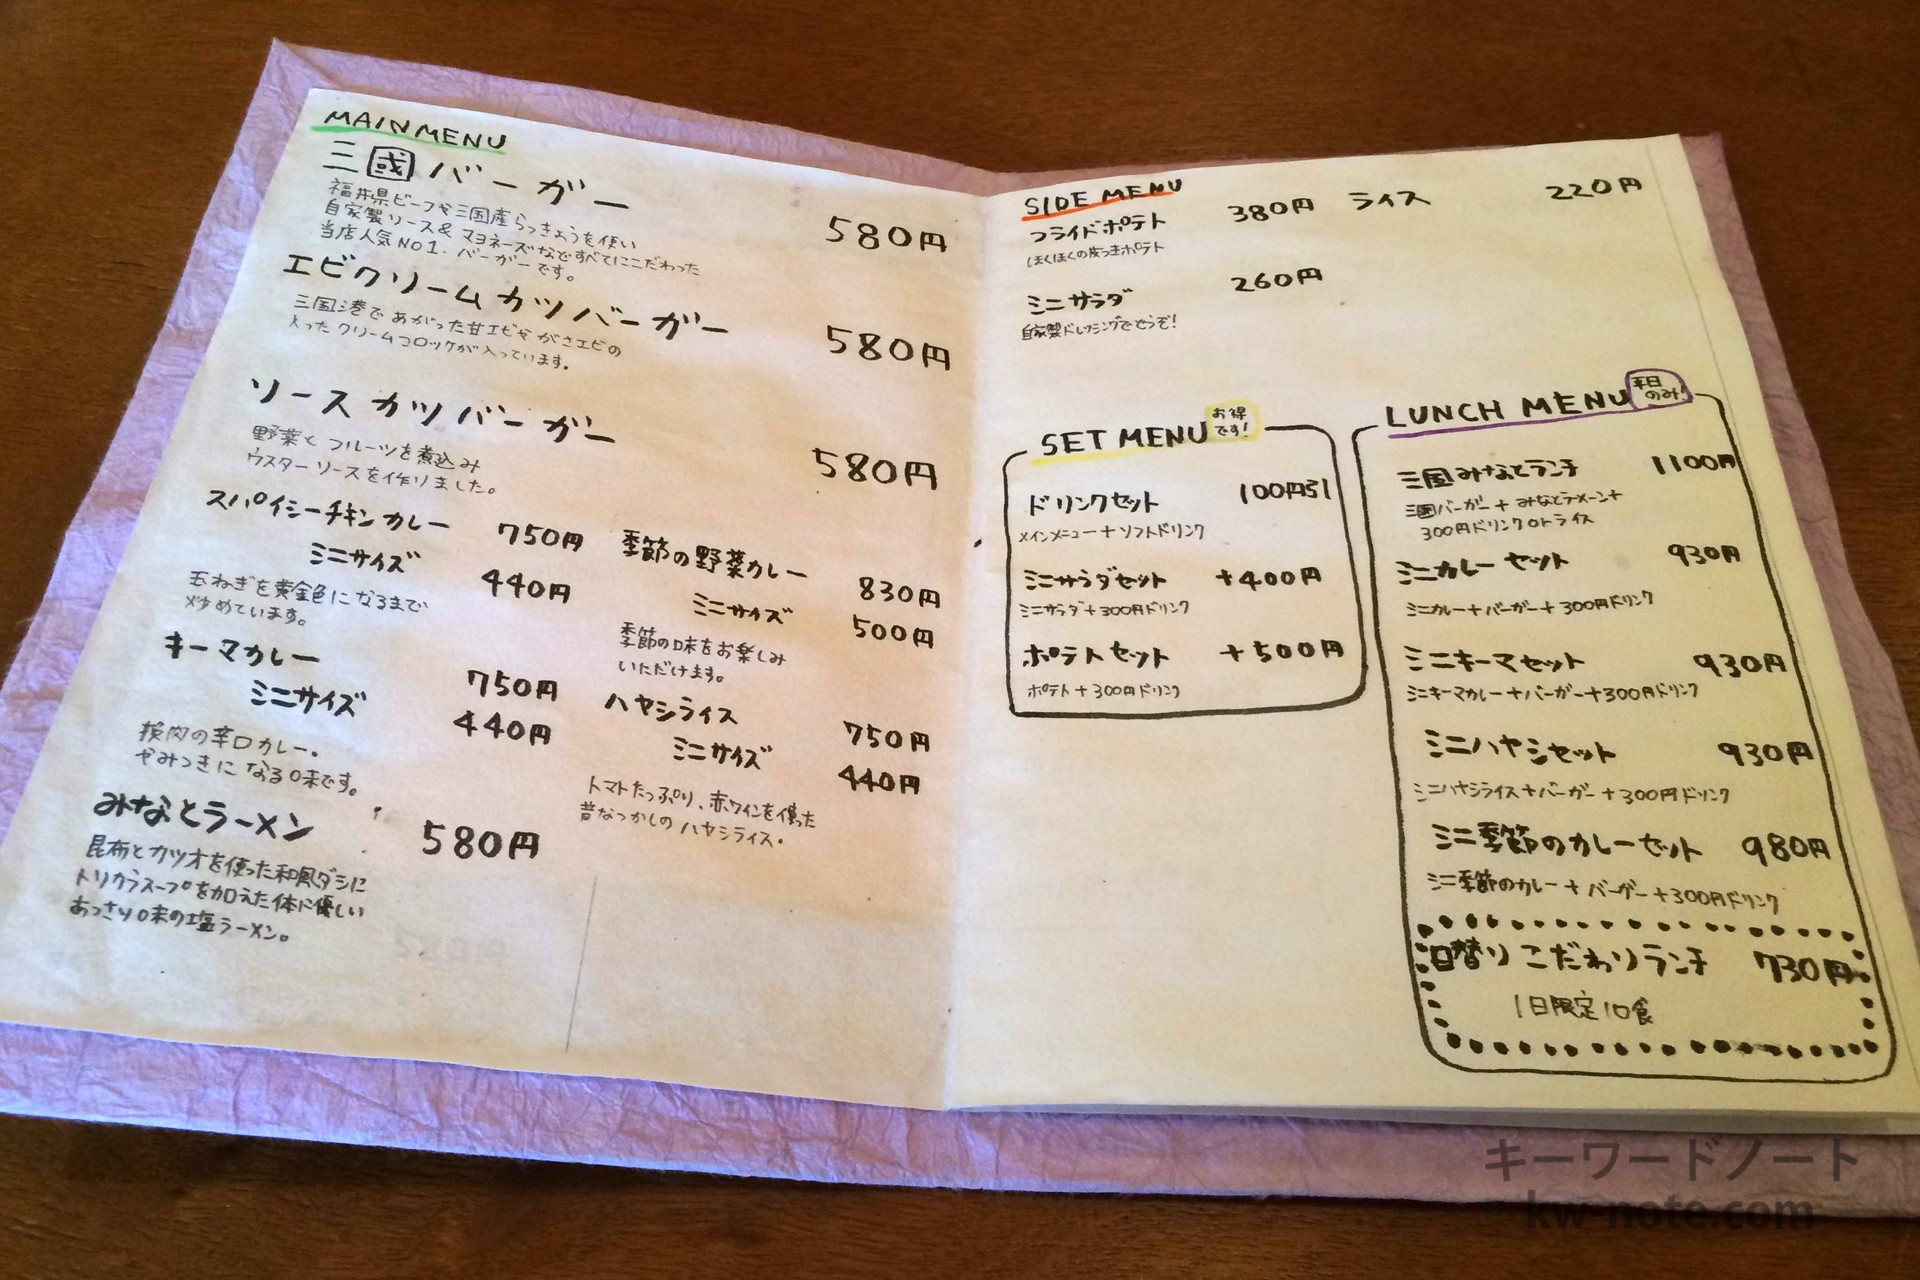 MAIN MENU
三國バーガー
580円
福井県ビーフや三国産らっきょうを使い
自家製ソース&マヨネーズなどすべてにこだわった
当店人気NO1.バーガーです。
エビクリームカツバーガー
580円
三国港であがった甘エビやがさエビの
入ったクリームコロッケが入っています。
ソースカツバーガー
580円
野菜とフルーツを煮込み
ウスターソースを作りました。
スパイシーチキンカレー 750円
ミニサイズ 440円
玉ねぎを黄金色になるまで
炒めています。
キーマカレー 750円
ミニサイズ 440円
挽肉の辛口カレー。
やみつきになる味です。
みなとラーメン 580円
昆布とカツオを使った和風ダシに
トリガラスープを加えた体に優しい
あっさり味の塩ラーメン。
季節の野菜カレー 830円
ミニサイズ 500円
季節の味をお楽しみ
いただけます。
ハヤシライス 750円
ミニサイズ 440円
トマトたっぷり、赤ワインを使った
昔なつかしのハヤシライス.
SIDE MENU
フライドポテト 380円
ほくほくの皮つきポテト
ライス 220円
ミニサラダ 260円
自家製ドレッシングでどうぞ!
SET MENU
お得
です!
ドリンクセット 100円引
メインメニュー+ソフトドリンク
ミニサラダセット +400円
ミニサラダ+300円ドリンク
ポテトセット +500円
ポテト+300円ドリンク
LUNCH MENU
平日
のみ!
三国みなとランチ 1100円
三國バーガー+みなとラーメン+
300円ドリンクorライス
ミニカレーセット 930円
ミニカレー+バーガー+300円ドリンク
ミニキーマセット 930円
ミニキーマカレー+バーガー+300円ドリンク
ミニハヤシセット 930円
ミニハヤシライス+バーガー+300円ドリンク
ミニ季節のカレーセット 980円
ミニ季節のカレー+バーガー+300円ドリンク
日替りこだわりランチ 730円
1日限定10食
キーワードノート
kw-note.com